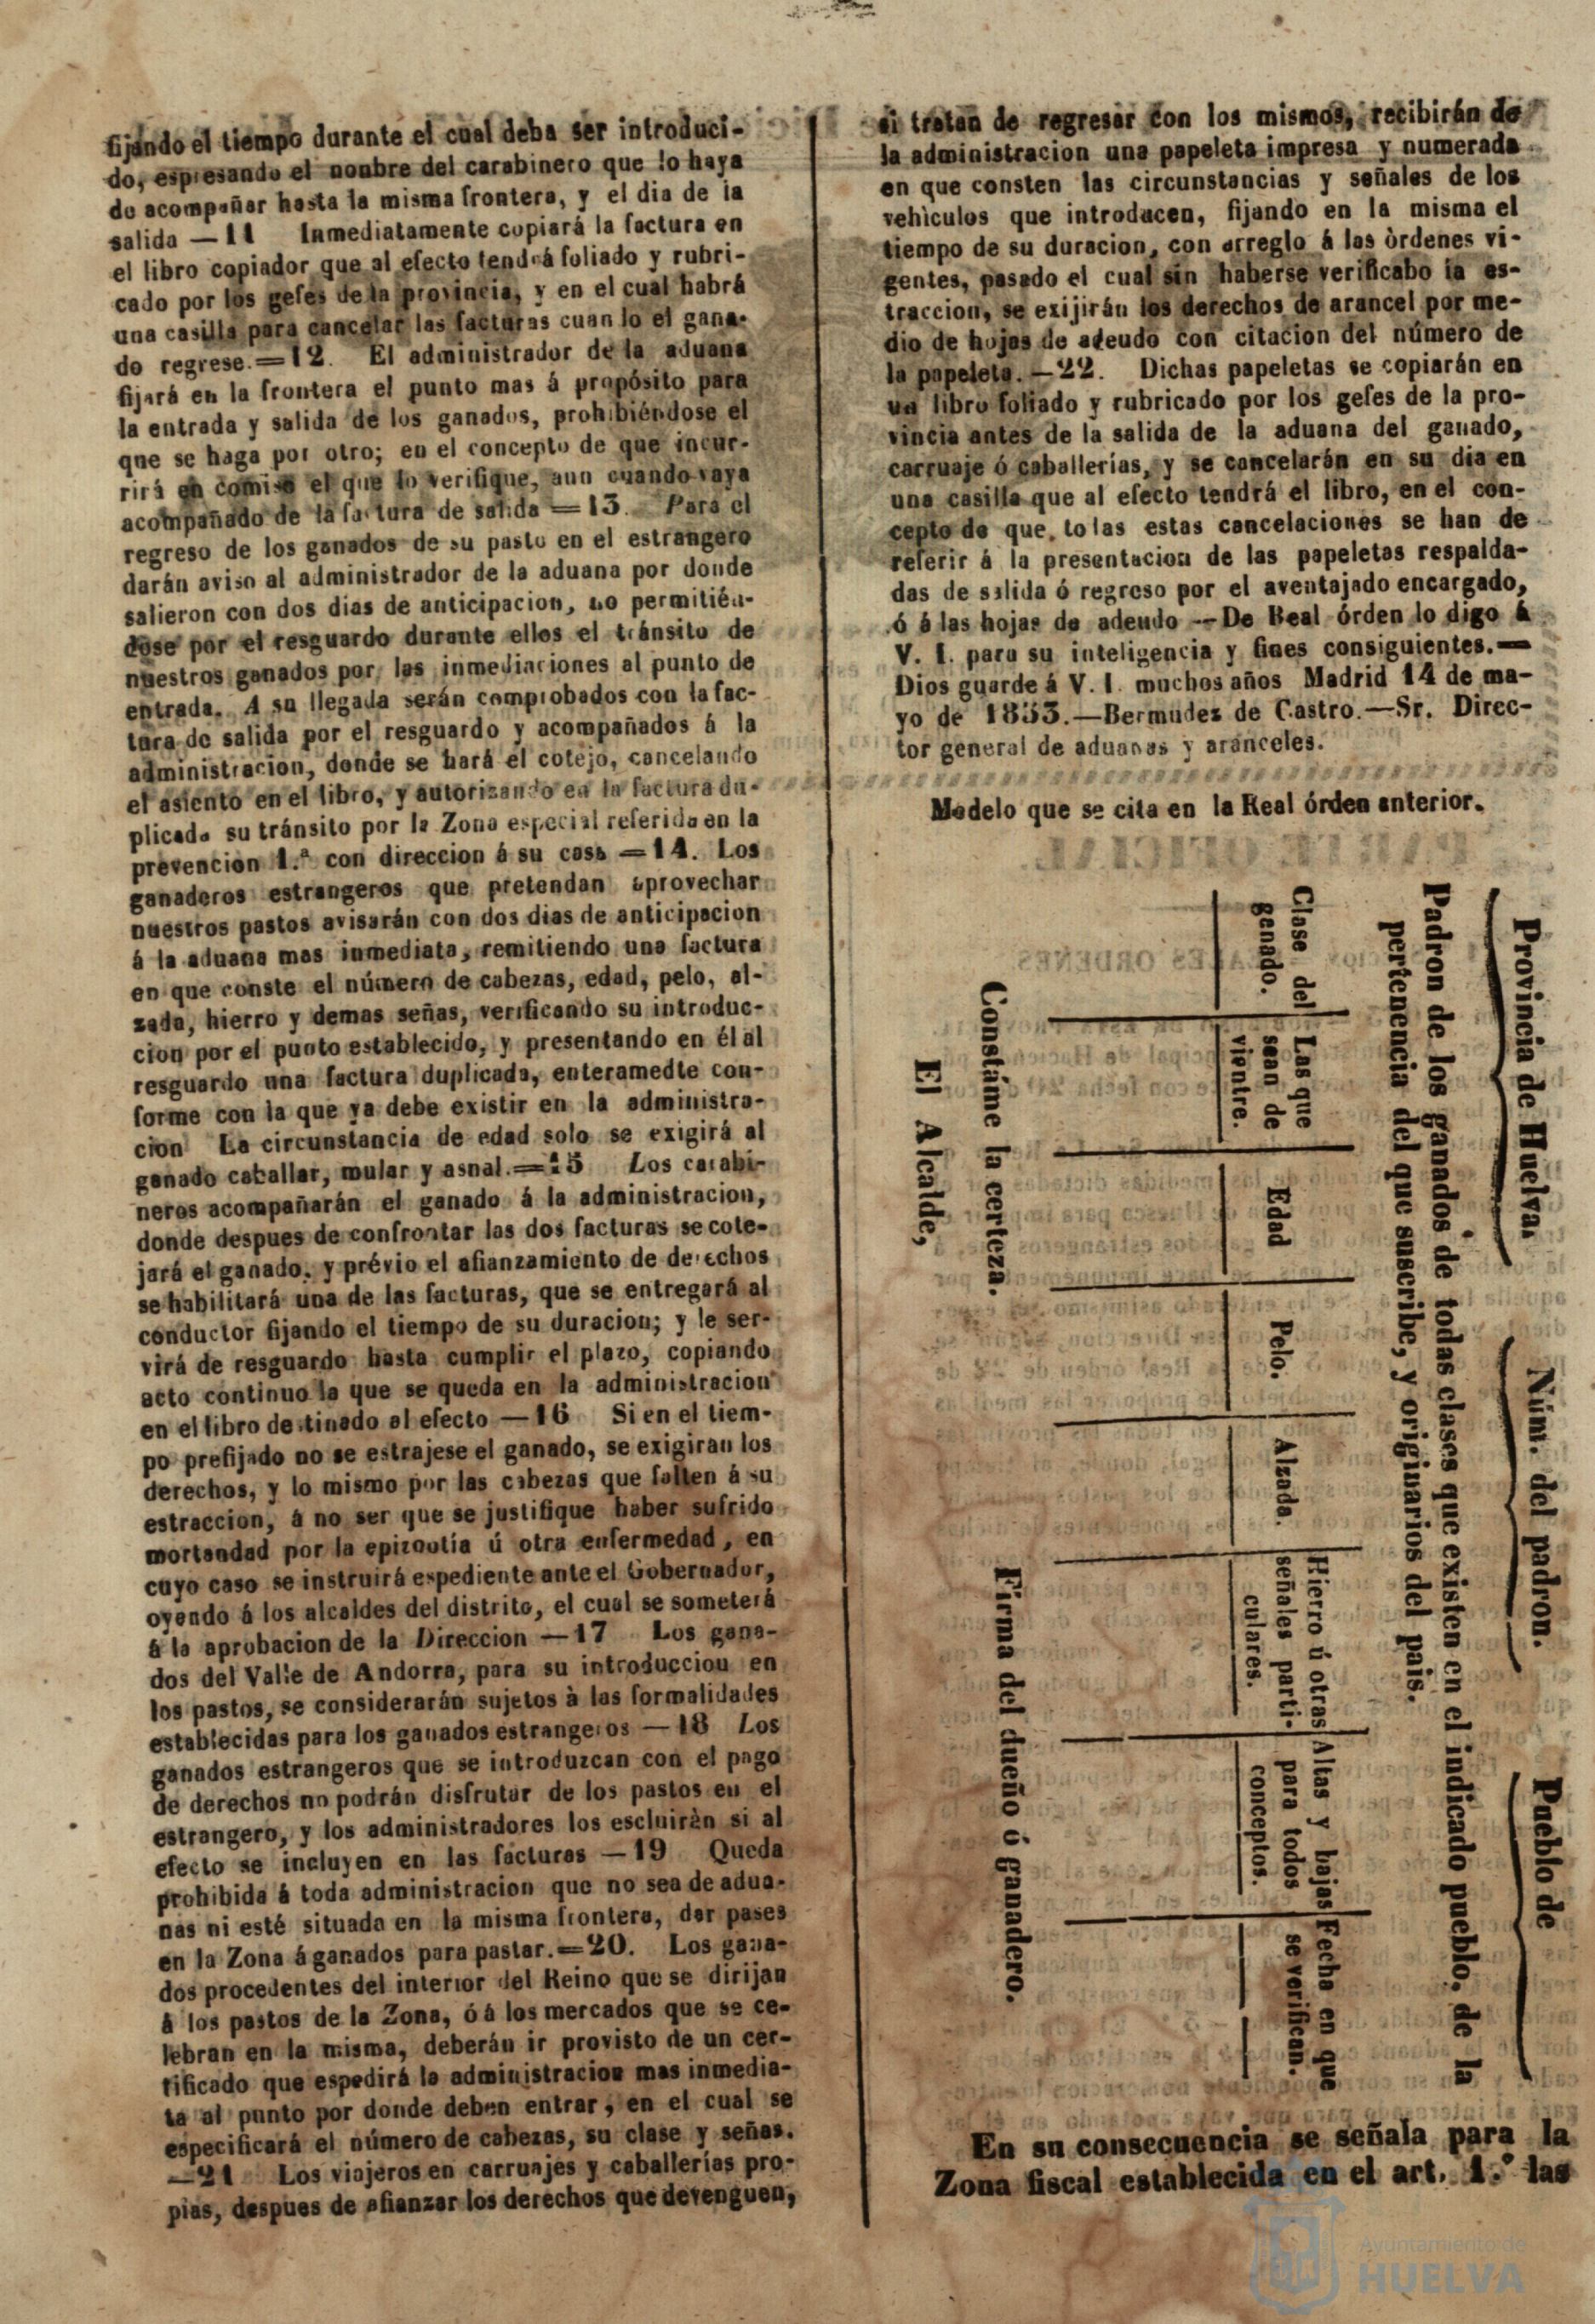 fijando el tiempo durante el cual deba ser introduci-
do, espresando el nonbre del carabinero que lo haya
de acompañar hasta la misma frontera, y el dia de la
salida —11 Inmediatamente copiará la factura en
el libro copiador que al efecto tendrá foliado y rubri-
cado por los gefes de la provincia, y en el cual habrá
una casilla para cancelar las facturas cuan lo el gana-
do regrese.=12. El administrador de la aduana
fijará en la frontera el punto mas á propósito para
la entrada y salida de los ganados, prohibiéndose el
que se haga por otro; en el concepto de que incur-
rirá en comiso el que lo verifique, aun cuando vaya
acompañado de la factura de salida =13. Para el
regreso de los ganados de su pasto en el estrangero
darán aviso al administrador de la aduana por donde
salieron con dos dias de anticipacion, no permitién-
dose por el resguardo durante ellos el tránsito de
nuestros ganados por las inmediaciones al punto de
entrada. A su llegada serán comprobados con la fac-
tura de salida por el resguardo y acompañados á la
administracion, donde se hará el cotejo, cancelando
el asiento en el libro, y autorizando en la factura du-
plicada su tránsito por la Zona especial referida en la
prevencion 1.ª con direccion á su casa =14. Los
ganaderos estrangeros que pretendan aprovechar
nuestros pastos avisarán con dos dias de anticipacion
á la aduana mas inmediata, remitiendo una factura
en que conste el número de cabezas, edad, pelo, al-
zada, hierro y demas señas, verificando su introduc-
cion por el punto establecido, y presentando en él al
resguardo una factura duplicada, enteramedte con-
forme con la que ya debe existir en la administra-
cion La circunstancia de edad solo se exigirá al
ganado caballar, mular y asnal.=15 Los carabi-
neros acompañarán el ganado á la administracion,
donde despues de confrontar las dos facturas se cote-
jará el ganado, y prévio el afianzamiento de derechos
se habilitará una de las facturas, que se entregará al
conductor fijando el tiempo de su duracion; y le ser-
virá de resguardo hasta cumplir el plazo, copiando
acto continuo la que se queda en la administracion
en el libro destinado al efecto —16 Si en el tiem-
po prefijado no se estrajese el ganado, se exigiran los
derechos, y lo mismo por las cabezas que falten á su
estraccion, á no ser que se justifique haber sufrido
mortandad por la epizootía ú otra enfermedad, en
cuyo caso se instruirá espediente ante el Gobernador,
oyendo á los alcaldes del distrito, el cual se someterá
á la aprobacion de la Direccion —17 Los gana-
dos del Valle de Andorra, para su introducciou en
los pastos, se considerarán sujetos à las formalidades
establecidas para los ganados estrangeros —18 Los
ganados estrangeros que se introduzcan con el pago
de derechos no podrán disfrutar de los pastos en el
estrangero, y los administradores los escluiràn si al
efecto se incluyen en las facturas —19 Queda
prohibida á toda administracion que no sea de adua-
nas ni esté situada en la misma frontera, dar pases
en la Zona á ganados para pastar.=20. Los gana-
dos procedentes del interior del Reino que se dirijan
á los pastos de la Zona, ó á los mercados que se ce-
lebran en la misma, deberán ir provisto de un cer-
tificado que espedirá la administracion mas inmedia-
ta al punto por donde deben entrar, en el cual se
especificará el número de cabezas, su clase y señas.
—21 Los viajeros en carruajes y caballerías pro-
pias, despues de afianzar los derechos que devenguen,
si tratan de regresar con los mismos, recibirán de
la administracion una papeleta impresa y numerada
en que consten las circunstancias y señales de los
vehìculos que introducen, fijando en la misma el
tiempo de su duracion, con arreglo á las òrdenes vi-
gentes, pasado el cual sin haberse verificabo la es-
traccion, se exijirán los derechos de arancel por me-
dio de hojas de adeudo con citacion del número de
la papeleta. —22. Dichas papeletas se copiarán en
un libro foliado y rubricado por los gefes de la pro-
vincia antes de la salida de la aduana del ganado,
carruaje ó caballerías, y se cancelarán en su dia en
una casilla que al efecto tendrá el libro, en el con-
cepto de que, tolas estas cancelaciones se han de
referir á la presentacion de las papeletas respalda-
das de salida ó regreso por el aventajado encargado,
ó á las hojas de adeudo —De Real órden lo digo á
V. I. para su inteligencia y fines consiguientes.—
Dios guarde á V. I. muchos años Madrid 14 de ma-
yo de 1853.—Bermudez de Castro.—Sr. Direc-
tor general de aduanas y aranceles.
Modelo que se cita en la Real órden anterior.
Provincia de Huelva. Núm. del padron. Pueblo de
Padron de los ganados de todas clases que existen en el indicado pueblo, de la
pertenencia del que suscribe, y originarios del pais.
Clase del
ganado.
Las que
sean de
vientre.
Edad
Pelo.
Alzada.
Hierro ú otras
señales parti-
culares.
Altas y bajas
para todos
conceptos.
Fecha en que
se verifican.
Constáme la certeza.
El Alcalde,
Firma del dueño ó ganadero.
En su consecuencia se señala para la
Zona fiscal establecida en el art. 1.º las
Ayuntamiento de
HUELVA